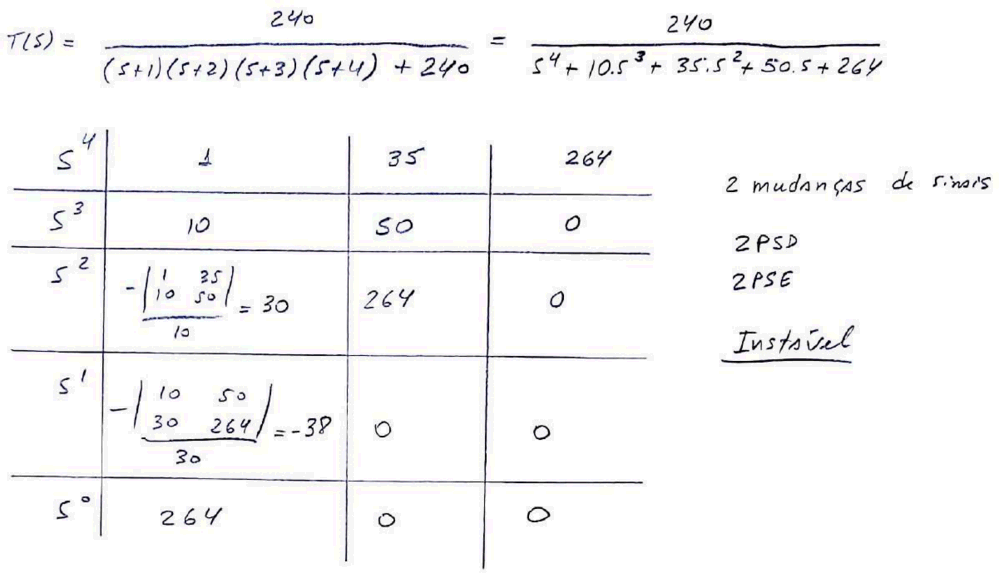 T(S) = 240 / ((S+1)(S+2)(S+3)(S+4) + 240) = 240 / (S⁴ + 10.S³ + 35.S² + 50.S + 264)
S⁴ | 1 | 35 | 264
S³ | 10 | 50 | 0
S² | -|1 35; 10 50| / 10 = 30 | 264 | 0
S¹ | -|10 50; 30 264| / 30 = -38 | 0 | 0
S⁰ | 264 | 0 | 0
2 mudanças de sinais
2PSD
2PSE
Instável